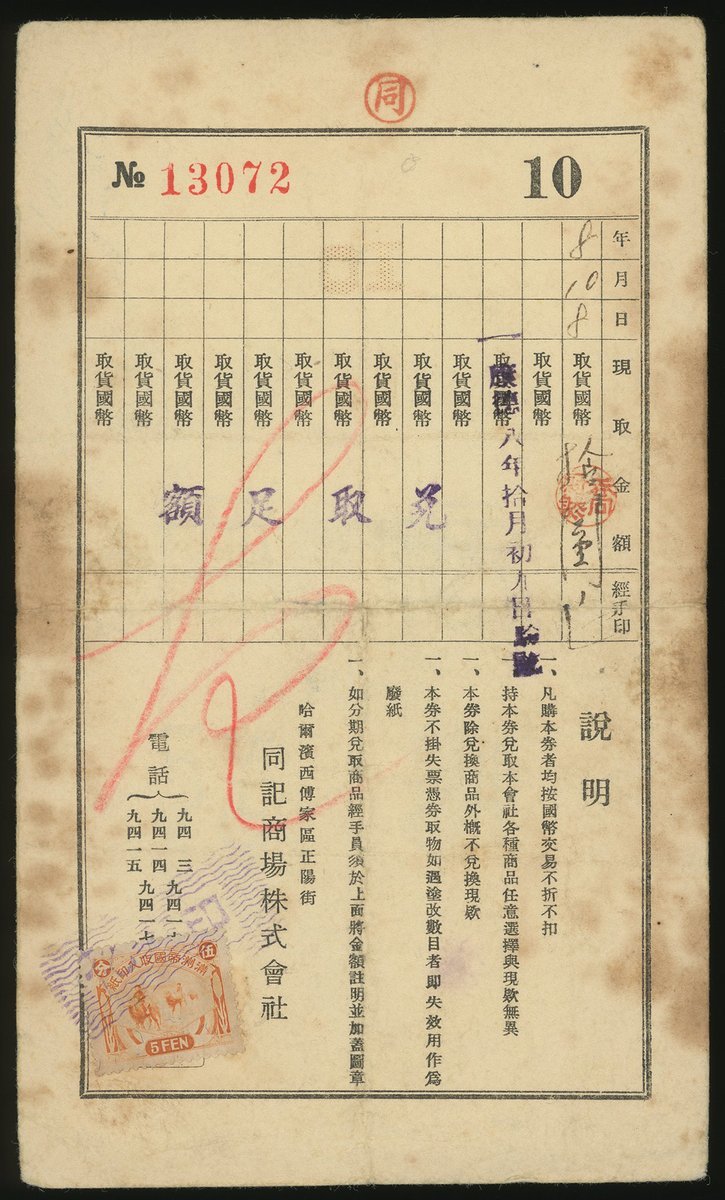 同
№ 13072
10
年 月 日 現取金額 經手印
8 10 8 取貨國幣 拾
取貨國幣
取貨國幣
取貨國幣
取貨國幣
取貨國幣
取貨國幣
取貨國幣
取貨國幣
取貨國幣
取貨國幣
取貨國幣
取貨國幣
康德八年拾月初八日驗訖
兌取足額
10
說明
一、凡購本券者均按國幣交易不折不扣
一、持本券兌取本會社各種商品任意選擇與現欵無異
一、本券除兌換商品外概不兌換現欵
一、本券不掛失票憑券取物如遇塗改數目者即失效用作爲
廢紙
一、如分期兌取商品經手員須於上面將金額註明並加蓋圖章
哈爾濱西傅家區正陽街
同記商場株式會社
電話
九四一三
九四一四
九四一五
九四一七
伍分
滿洲帝國收入印紙
5 FEN
印